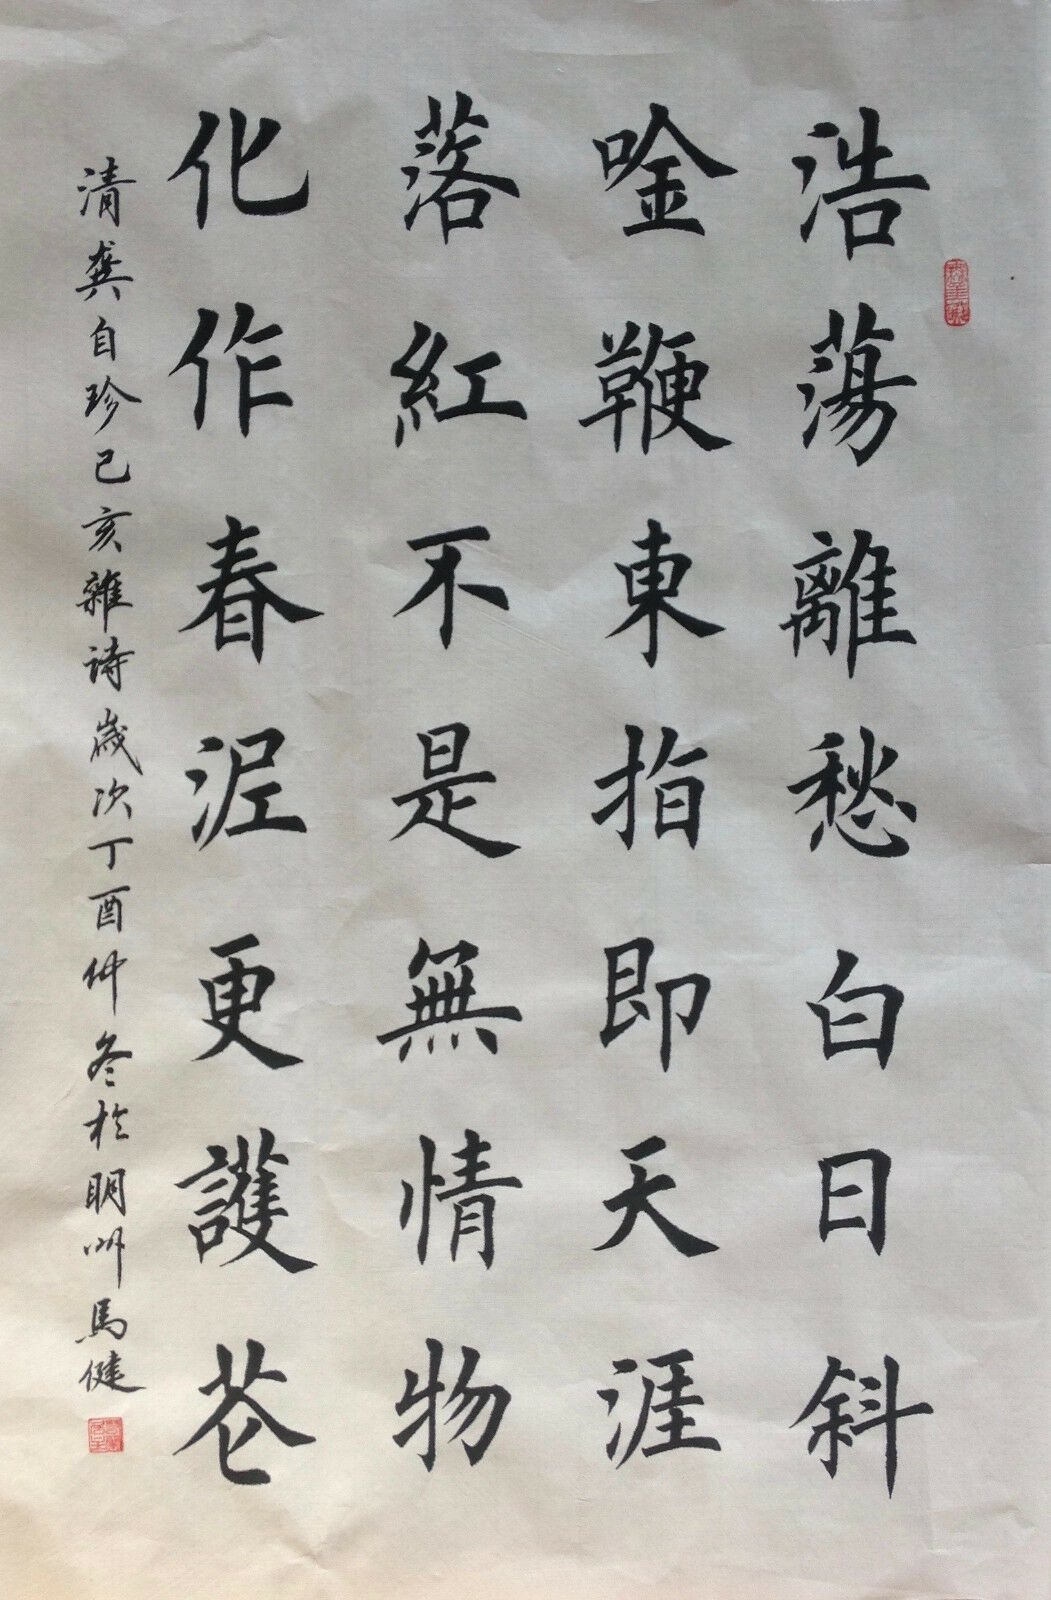 浩蕩離愁白日斜
唫鞭東指即天涯
落紅不是無情物
化作春泥更護花
清龔自珍己亥雜诗歲次丁酉仲冬於明州馬健